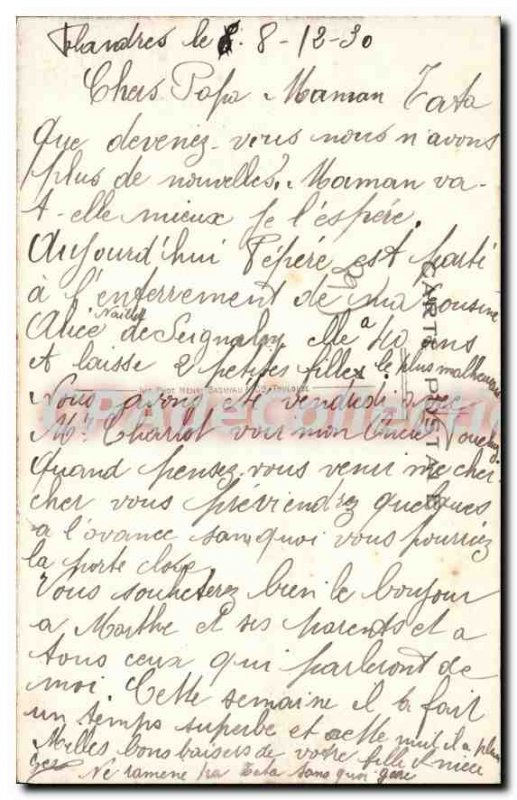 Flandres le 8. 8-12-30
Chers Papa Maman Tata
que devenez-vous nous n'avons
plus de nouvelles? Maman va-
t-elle mieux je l'espére.
Aujourd'hui Pépére est parti
à l'enterrement de ma cousine
Alice de elle a 40 ans
et laisse 2 petites filles le plus malheureux
Nous avons été vendredi avec
Mr Charlot voir mon Oncle
quand pensez vous venir me cher-
cher vous préviendrez quelques
a l'avance sans quoi vous pourriez
la porte close
Vous souheterez bien le bonjour
a Marthe et ses parents et a
tous ceux qui parleront de
moi. Cette semaine il a fait
un temps superbe et cette nuit il a plu
Milles bons baisers de votre fille et niece
Ne ramene pas Tata sans quoi gare
CARTE POSTALE